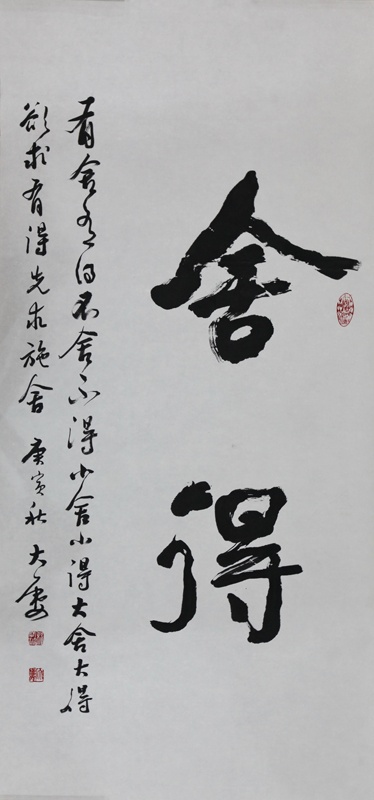 舍得
有舍有得不舍不得小舍小得大舍大得
欲求有得先求施舍 庚寅秋 大